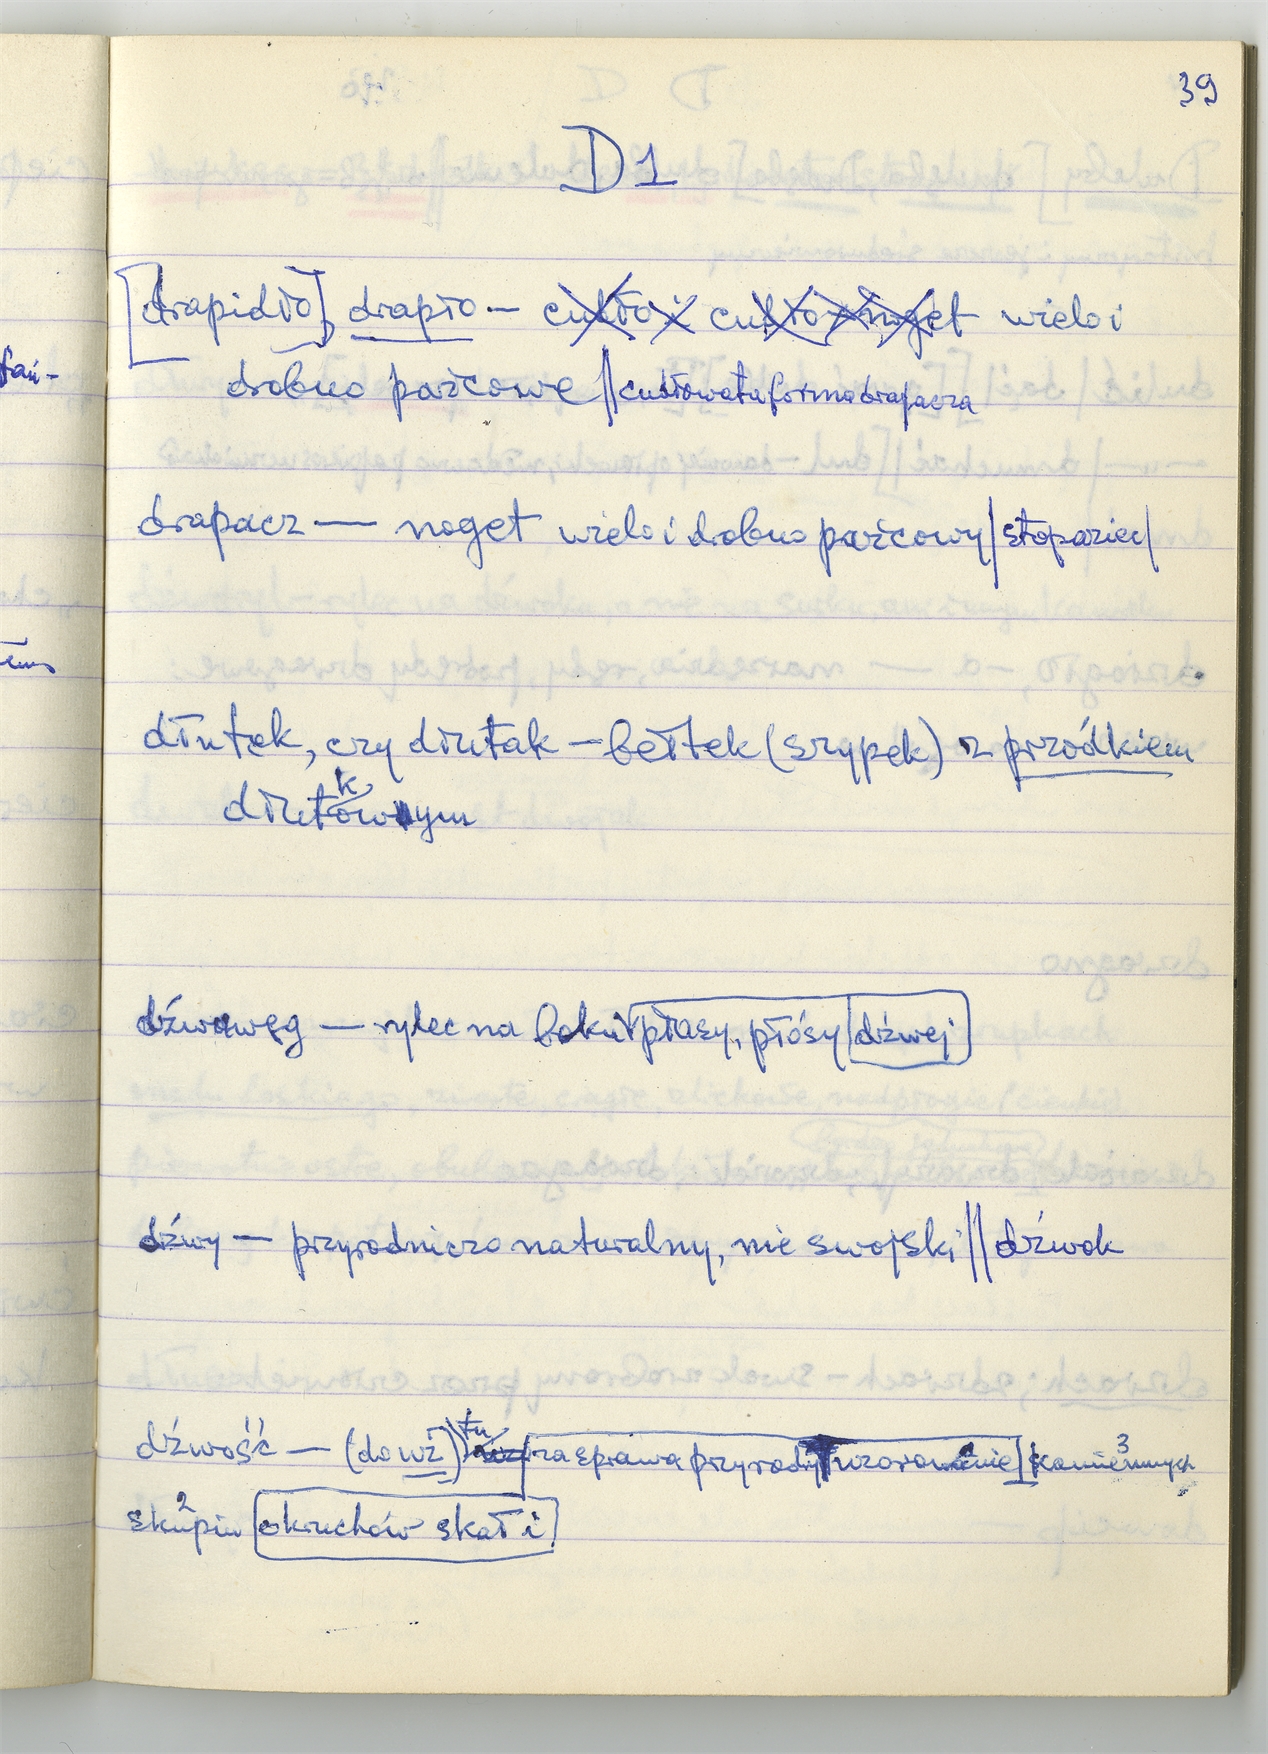 39
D1
[drapidło], drapło — cusło i cusło noget wielo i
drobno parcowe || cusłowata forma drapacza
drapacz — noget wielo i drobno parcowy | stopaziec |
dłutek, czy dłutak – bełtek (szypek) z przódkiem
k
dłutowym
dźwawęg — rylec na boku płasy, płósy dźwej
dźwy — przyrodniczo naturalny, nie swojski || dźwok
tu
dźwość — (do wz) za sprawą przyrody wzorowanie kamiennych 3
skupin 2 okruchów skał i